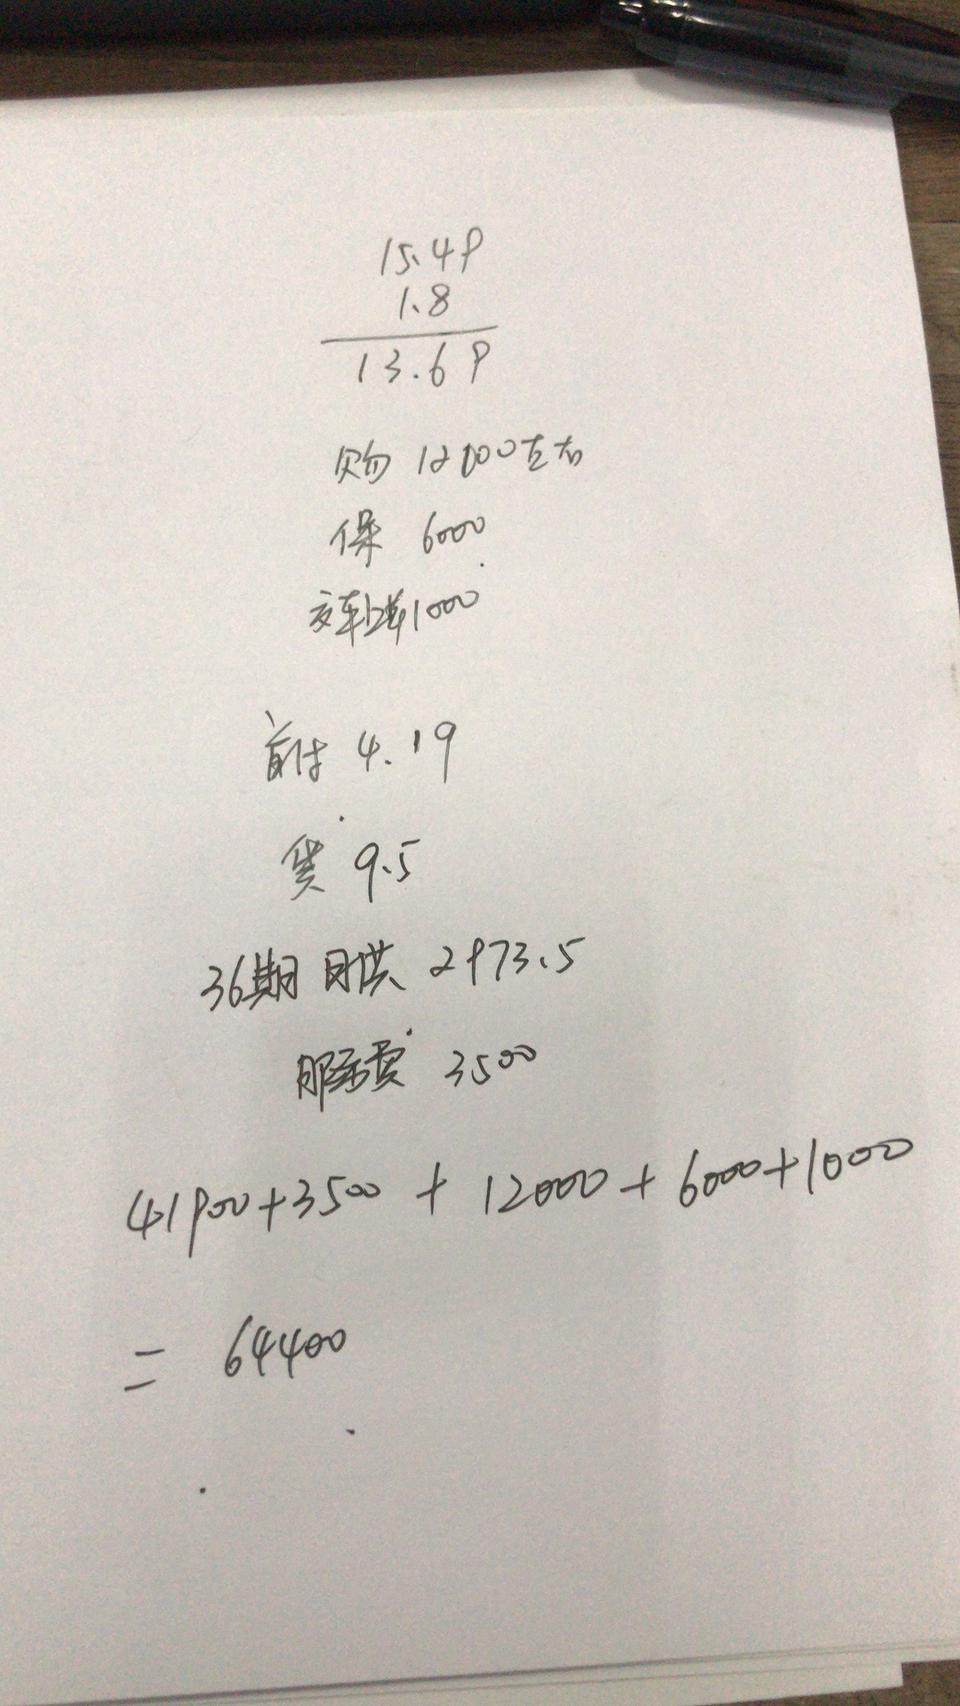 15.49
1.8
13.69
购 12000左右
保 6000
交车上牌1000
首付 4.19
贷 9.5
36期 月供 2973.5
服务费 3500
41900+3500 + 12000+6000+1000
= 64400